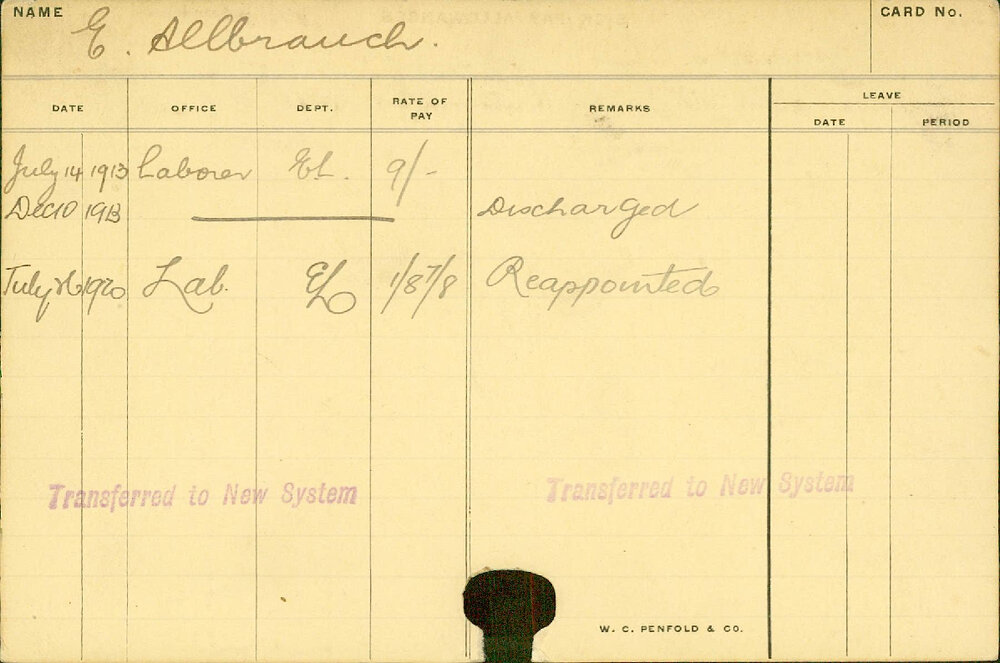 NAME
E. Allbrauch.
CARD No.
DATE OFFICE DEPT. RATE OF PAY REMARKS LEAVE
DATE PERIOD
July 14 1913 Laborer EL. 9/-
Dec 10 1913 Discharged
July 26 1920 Lab. EL 1/8 7/8 Reappointed
Transferred to New System Transferred to New System
W. C. PENFOLD & CO.